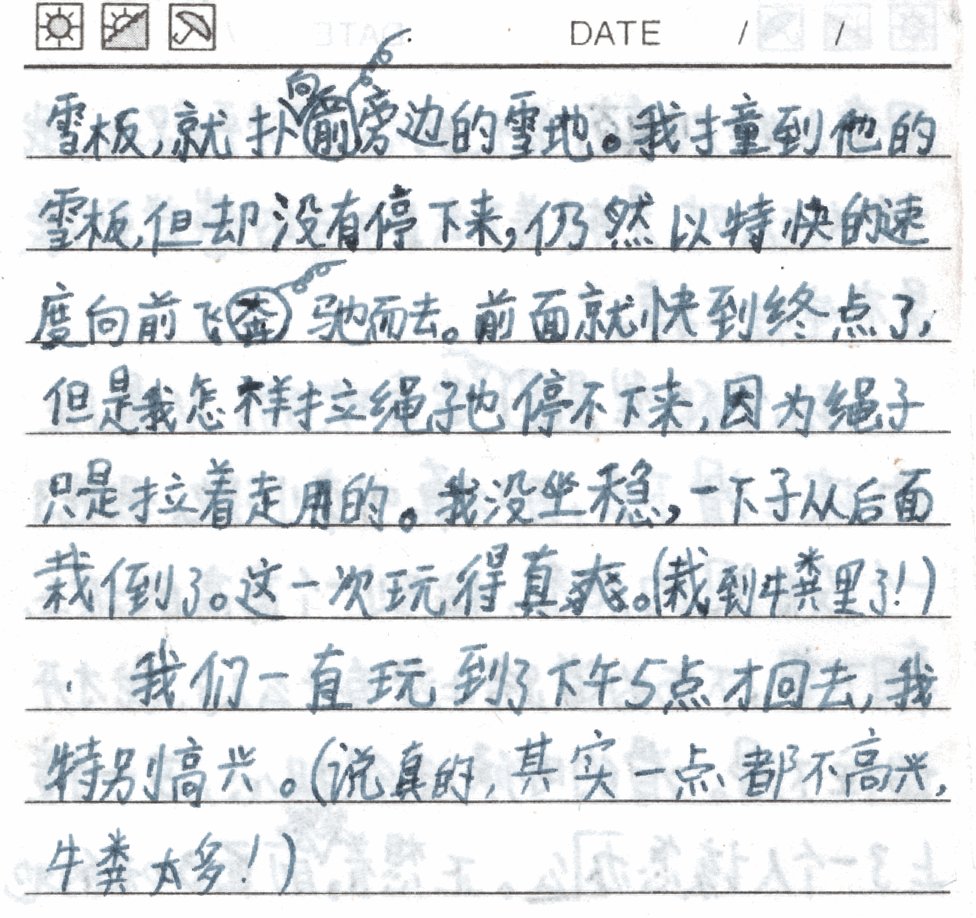 DATE / /
雪板,就扑向旁边的雪地。我撞到他的
雪板,但却没有停下来,仍然以特快的速
度向前飞驰而去。前面就快到终点了,
但是我怎样拉绳子也停不下来,因为绳子
只是拉着走用的。我没坐稳,一下子从后面
栽倒了。这一次玩得真爽。(栽到牛粪里了!)
我们一直玩到了下午5点才回去,我
特别高兴。(说真的,其实一点都不高兴,
牛粪太多!)